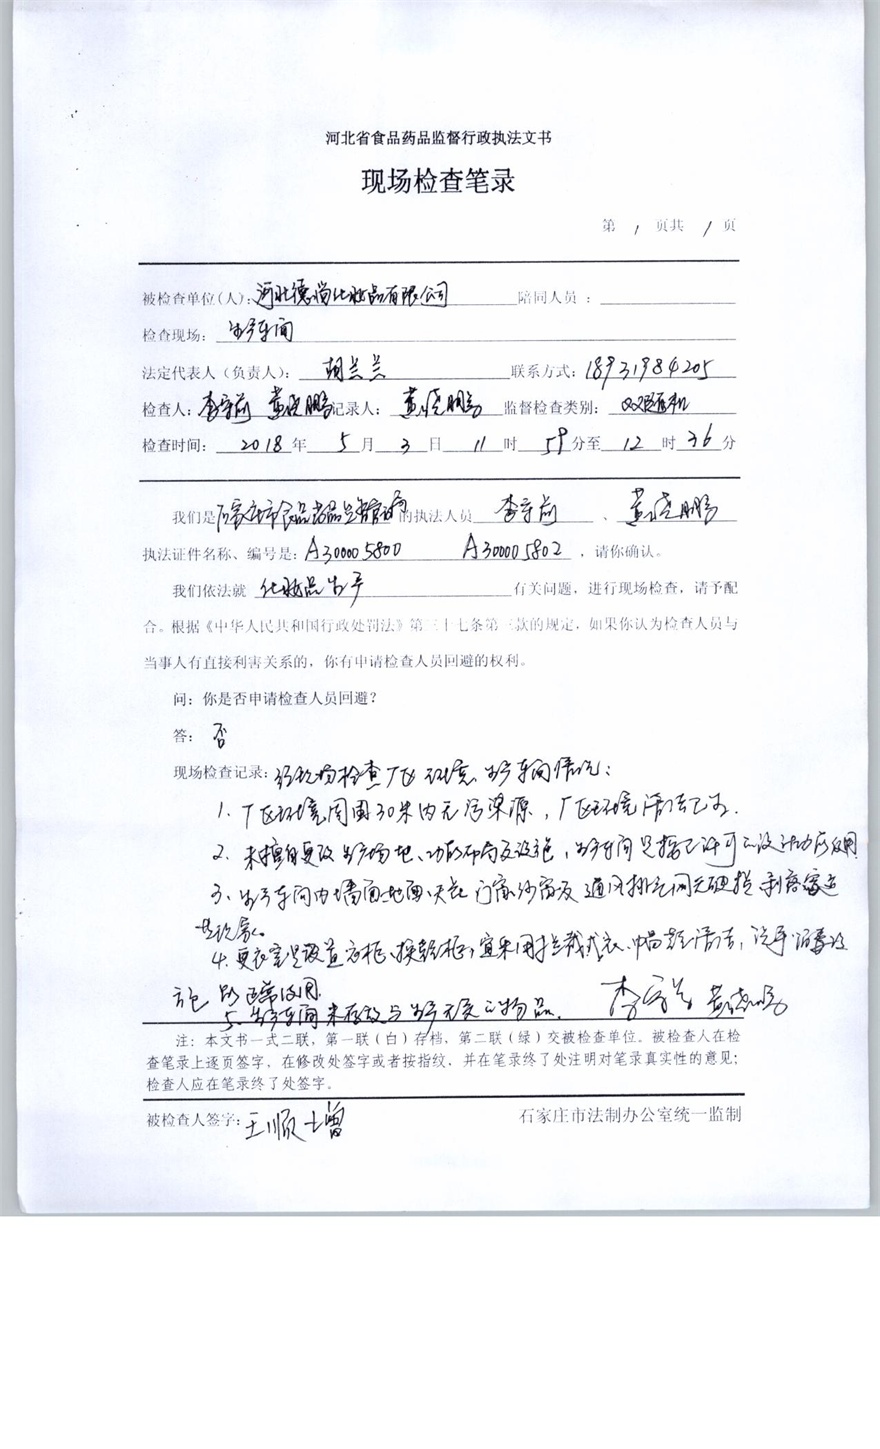 河北省食品药品监督行政执法文书
现场检查笔录
第 1 页共 1 页
被检查单位(人):河北德尚化妆品有限公司 陪同人员:
检查现场: 生产车间
法定代表人(负责人): 胡兰兰 联系方式:18931984205
检查人:李守前 黄晓鹏 记录人: 黄晓鹏 监督检查类别: 双随机
检查时间: 2018 年 5 月 3 日 11 时 59 分至 12 时 36 分
我们是石家庄市食品药品监督管理局的执法人员 李守前 、 黄晓鹏
执法证件名称、编号是:A300005800 A300005802 ,请你确认。
我们依法就 化妆品生产 有关问题,进行现场检查,请予配
合。根据《中华人民共和国行政处罚法》第三十七条第三款的规定,如果你认为检查人员与
当事人有直接利害关系的,你有申请检查人员回避的权利。
问:你是否申请检查人员回避?
答: 否
现场检查记录:经现场检查厂区环境、生产车间情况:
1. 厂区环境周围30米内无污染源,厂区环境清洁
2. 未擅自更改生产场地、功能布局及设施,生产车间是按照许可的设计功能使用
3、生产车间内墙面地面天花 门窗纱窗及通风排气网无破损
4. 更衣室是设置衣柜、换鞋柜, 洗手消毒设
施 正常使用
5. 生产车间未存放与生产无关的物品. 李守前 黄晓鹏
注:本文书一式二联,第一联(白)存档,第二联(绿)交被检查单位。被检查人在检
查笔录上逐页签字,在修改处签字或者按指纹,并在笔录终了处注明对笔录真实性的意见;
检查人应在笔录终了处签字。
被检查人签字:王顺增 石家庄市法制办公室统一监制